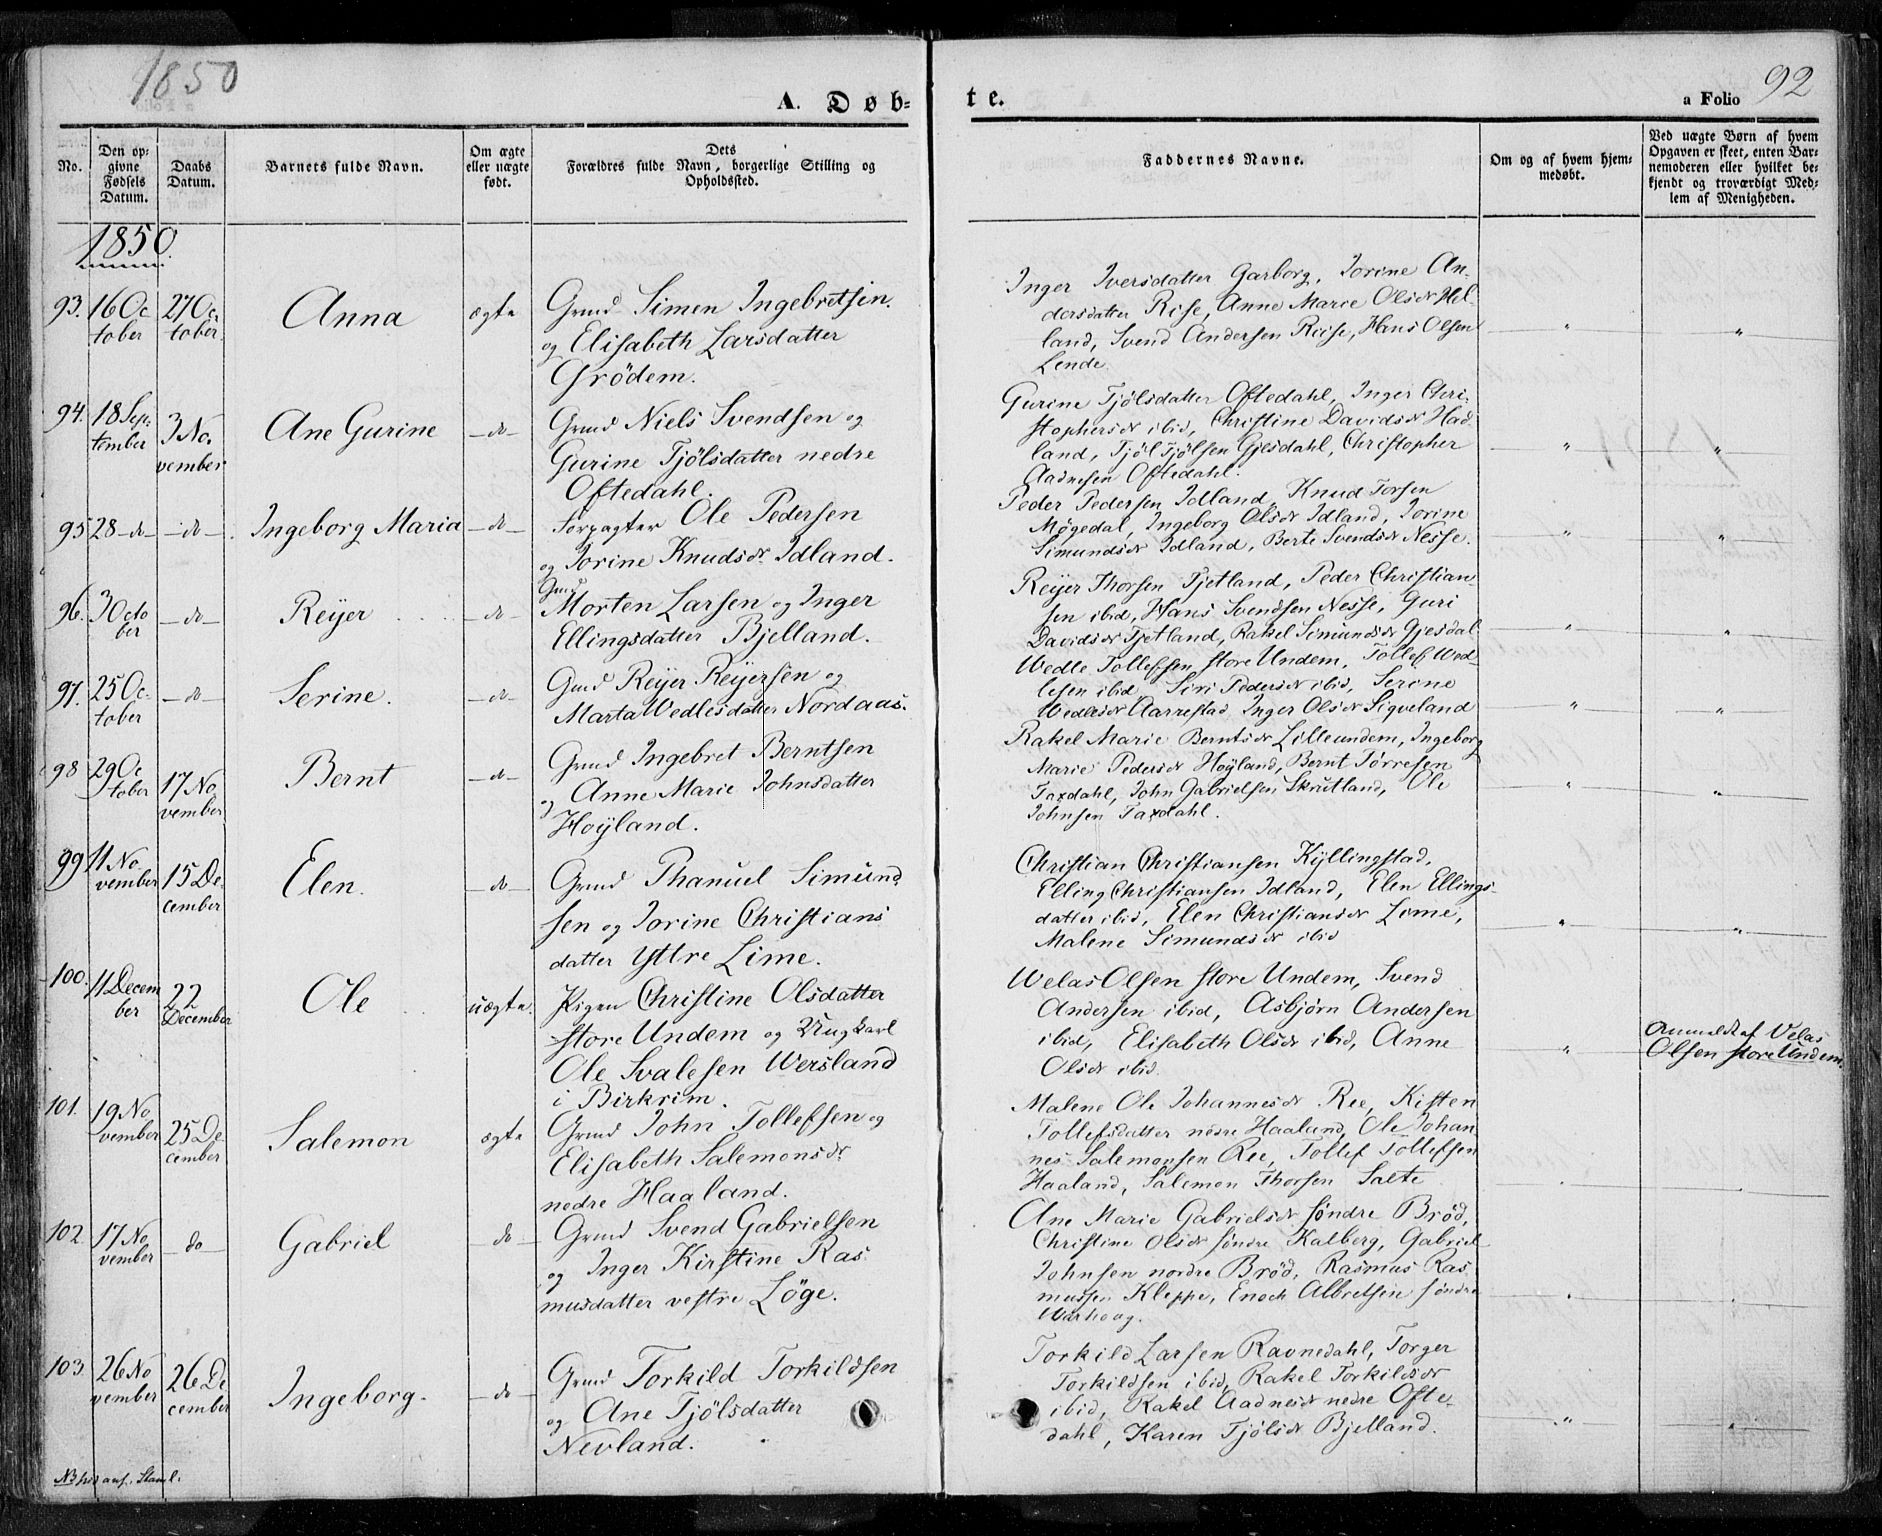 1850
A. Døb-
te.
a Folio 92
No.
Den op-
givne
Fødsels
Datum.
Daabs
Datum.
Barnets fulde Navn.
Om ægte
eller uægte
født.
Dets
Forældres fulde Navn, borgerlige Stilling og
Opholdssted.
Faddernes Navne.
Om og af hvem hjem-
medøbt.
Ved uægte Børn af hvem
Opgaven er skeet, enten Bar-
nemoderen eller hvilket be-
kjendt og troværdigt Med-
lem af Menigheden.
1850.
93. 16 Oc
tober
27 Oc-
tober
Anna
ægte
Grmd Simen Ingebretsen
og Elisabeth Larsdatter
Grödem.
Inger Iversdatter Garborg, Torine An-
dersdatter Riise, Anne Marie Olsdr Hel-
land, Svend Andersen Riise, Hans Olsen
Lende.
94. 18 Sep-
tember
3 No-
vember
Ane Gurine
do
Grmd Niels Svendsen og
Gurine Tjölsdatter nedre
Oftedahl.
Gurine Tjölsdatter Oftedahl, Inger Chri-
stophersdr ibid, Christine Davidsdr Had-
land, Tjöl Tjölsen Gjesdahl, Christopher
Aadnesen Oftedahl.
95 28 do
do
Ingeborg Maria
do
Forpagter Ole Pedersen
og Torine Knudsdr Idland.
Peder Pedersen Idland, Knud Torsen
Møgedal, Ingeborg Olsdr Idland, Torine
Simundsdr Idland, Berte Svendsdr Nesse.
96. 3 Octo
ber
do
Reijer
do
Grmd
Morten Larsen og Inger
Ellingsdatter Bjelland.
Reijer Thorsen Tjetland, Peder Christian
sen ibid, Hans Svendsen Nesse, Guri
Davidsdr Tjetland, Rakel Simundsdr Gjesdal
97. 25 Oc-
tober
do
Serine.
do
Grmd Reijer Reijersen og
Marta Wedlesdatter Nordaas.
Wedle Tollefsen store Undem, Tollef Wed-
lesen ibid, Siri Pedersdr ibid, Serine
Wedlesdr Aarrestad, Inger Olsdr Sigveland
98 29 Oc
tober
17 No
vember
Bernt
do
Grmd Ingebret Berntsen
og Anne Marie Johnsdatter
Hoÿland.
Rakel Marie Berntsdr Lilleundem, Ingeborg
Marie Pedersdr Hoÿland, Bernt Törresen
Taxdahl, John Gabrielsen Skrutland, Ole
Johnsen Taxdahl.
99 11 No
vember
15 De-
cember
Elen.
do
Grmd Thanuel Simund
sen og Torine Christians
datter Yttre Lime.
Christian Christiansen Kÿllingstad,
Elling Christiansen Idland, Elen Ellings-
datter ibid, Elen Christiansdr Lime,
Malene Simundsdr ibid
100. 11 Decem
ber
22
December
Ole
uægte.
Pigen Christine Olsdatter
store Undem og Ungkarl
Ole Svalesen Wersland
i Birkrim.
Welas Olsen store Undem, Svend
Andersen ibid, Asbjørn Andersen
ibid, Elisabeth Olsdr ibid, Anne
Olsdr ibid.
Anmeldt af Velas
Olsen store Undem.
101. 19 No
vember
25 De-
cember
Salemon
ægte
Grmd John Tollefsen og
Elisabeth Salemonsdr
nedre Haaland.
Malene Ole Johannesdr Ree, Kisten
Tollefsdatter nedre Haaland, Ole Johan-
nes Salemonsen Ree, Tollef Tollefsen
Haaland, Salemon Thorsen Salte
102. 17 No
vember
do
Gabriel
do
Grmd Svend Gabrielsen
og Inger Kirstine Ras
musdatter vestre Löge.
Ane Marie Gabrielsdr søndre Bröd,
Christine Olsdr søndre Kalberg, Gabriel
Johnsen nordre Bröd, Rasmus Ras
mussen Kleppe, Enoch Albretsen søndre
Warhoug.
103. 26 No
vember
26 De
cember
Ingeborg.
do
Grmd Torkild Torkildsen
og Ane Tjölsdatter
Nevland.
Torkild Larsen Ravnedahl, Torger
Torkildsen ibid, Rakel Torkildsdr
ibid, Rakel Aadnesdr nedre Ofte-
dahl, Karen Tjölsdr Bjelland.